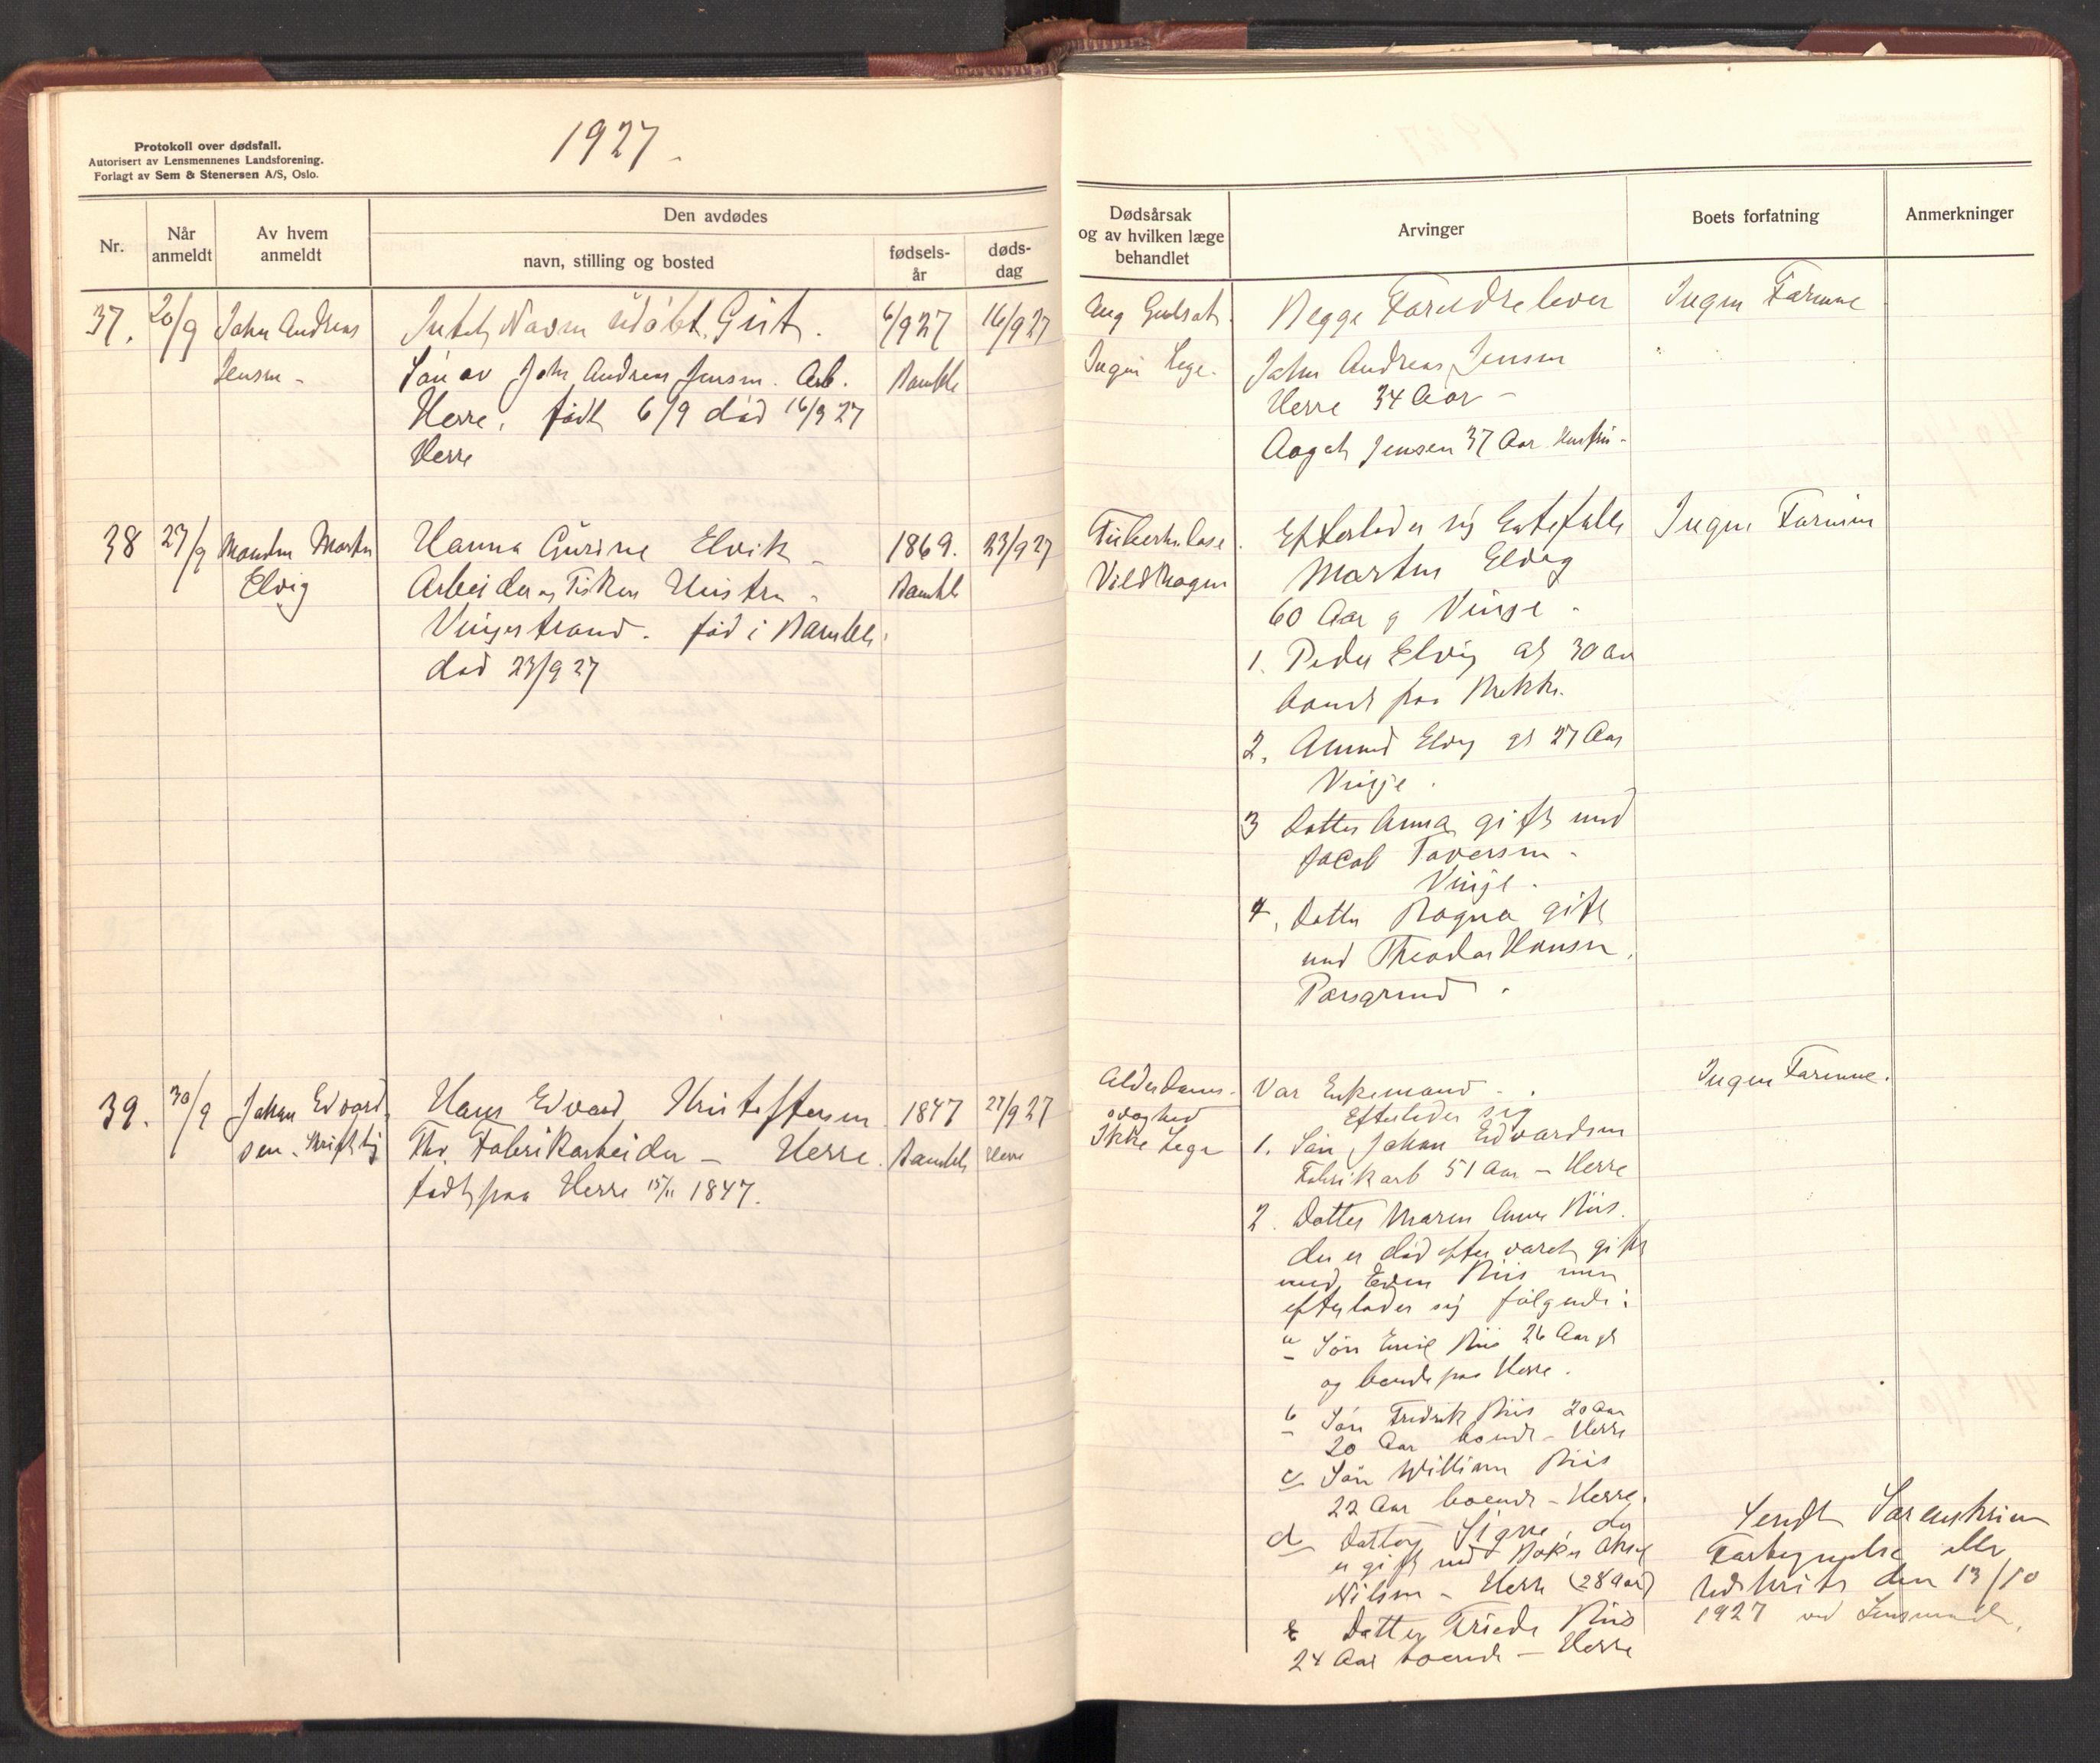 1927.
Protokoll over dødsfall.
Autorisert av Lensmennenes Landsforening.
Forlagt av Sem & Stenersen A/S, Oslo.
Nr.
Når anmeldt
Av hvem anmeldt
Den avdødes
navn, stilling og bosted
fødsels-år
døds-dag
Dødsårsak og av hvilken læge behandlet
Arvinger
Boets forfatning
Anmerkninger
37. 20/9 John Andreas
Jensen -
Intet Navn udøbt Gut.
Søn av John Andreas Jensen. Arb.
Herre, født 6/9 død 16/9 27
Herre
6/9 27
Bamble
16/9 27
Ingen Lege.
Begge Foreldre lever
John Andreas Jensen
Herre 34 Aar -
Aagot Jensen 37 Aar Hustru -
Ingen Formue
38 27/9 Manden Martin
Elvig
Hanna Gurine Elvik -
Arbeider og Fisker Hustru -
Vinjestrand. fød i Bamble.
død 23/9 27
1869.
Bamble
23/9 27
Tuberkulose.
Vildhagen
Efterlader sig Ektefelle
Martin Elvig
60 Aar g Vinje.
1. Peder Elvig gl 30 Aar
boende paa Bakke.
2. Amund Elvig gl 27 Aar
Vinje.
3 Datter Anna gift med
Jacob Taversen -
Vinje.
4. Datter Ragna gift
med Theodor Hansen.
Porsgrund.
Ingen Formue
39. 30/9 Johan Edvard
sen. Skriftlig
Hans Edvard Kristoffersen
Fhv. Fabrikarbeider - Herre.
født paa Herre 15/11 1847.
1847
Bamble
27/9 27
Herre
Alderdoms-
svaghed
Ikke Lege
Var Enkemand -
Efterlader sig
1. Søn Johan Edvardsen
Fabrikarb 51 Aar - Herre
2. Datter Maren Anne Riis.
der er død efter varet gift
med Riis men
efterlader sig følgende:
a Søn Emil Riis 26 Aar gl
og boende paa Herre.
b Søn Fredrik Riis 20 Aar
20 Aar boende - Herre
c Søn William Riis
22 Aar boende - Herre.
d Datter Signe, der
er gift med Baker
Nilsen - Herre (28 Aar)
e Datter Frieda Riis
24 Aar boende - Herre
Ingen Formue.
Sendt Sorenskriver
eller
Udskrift den 13/10
1927 ved Lensmanden.